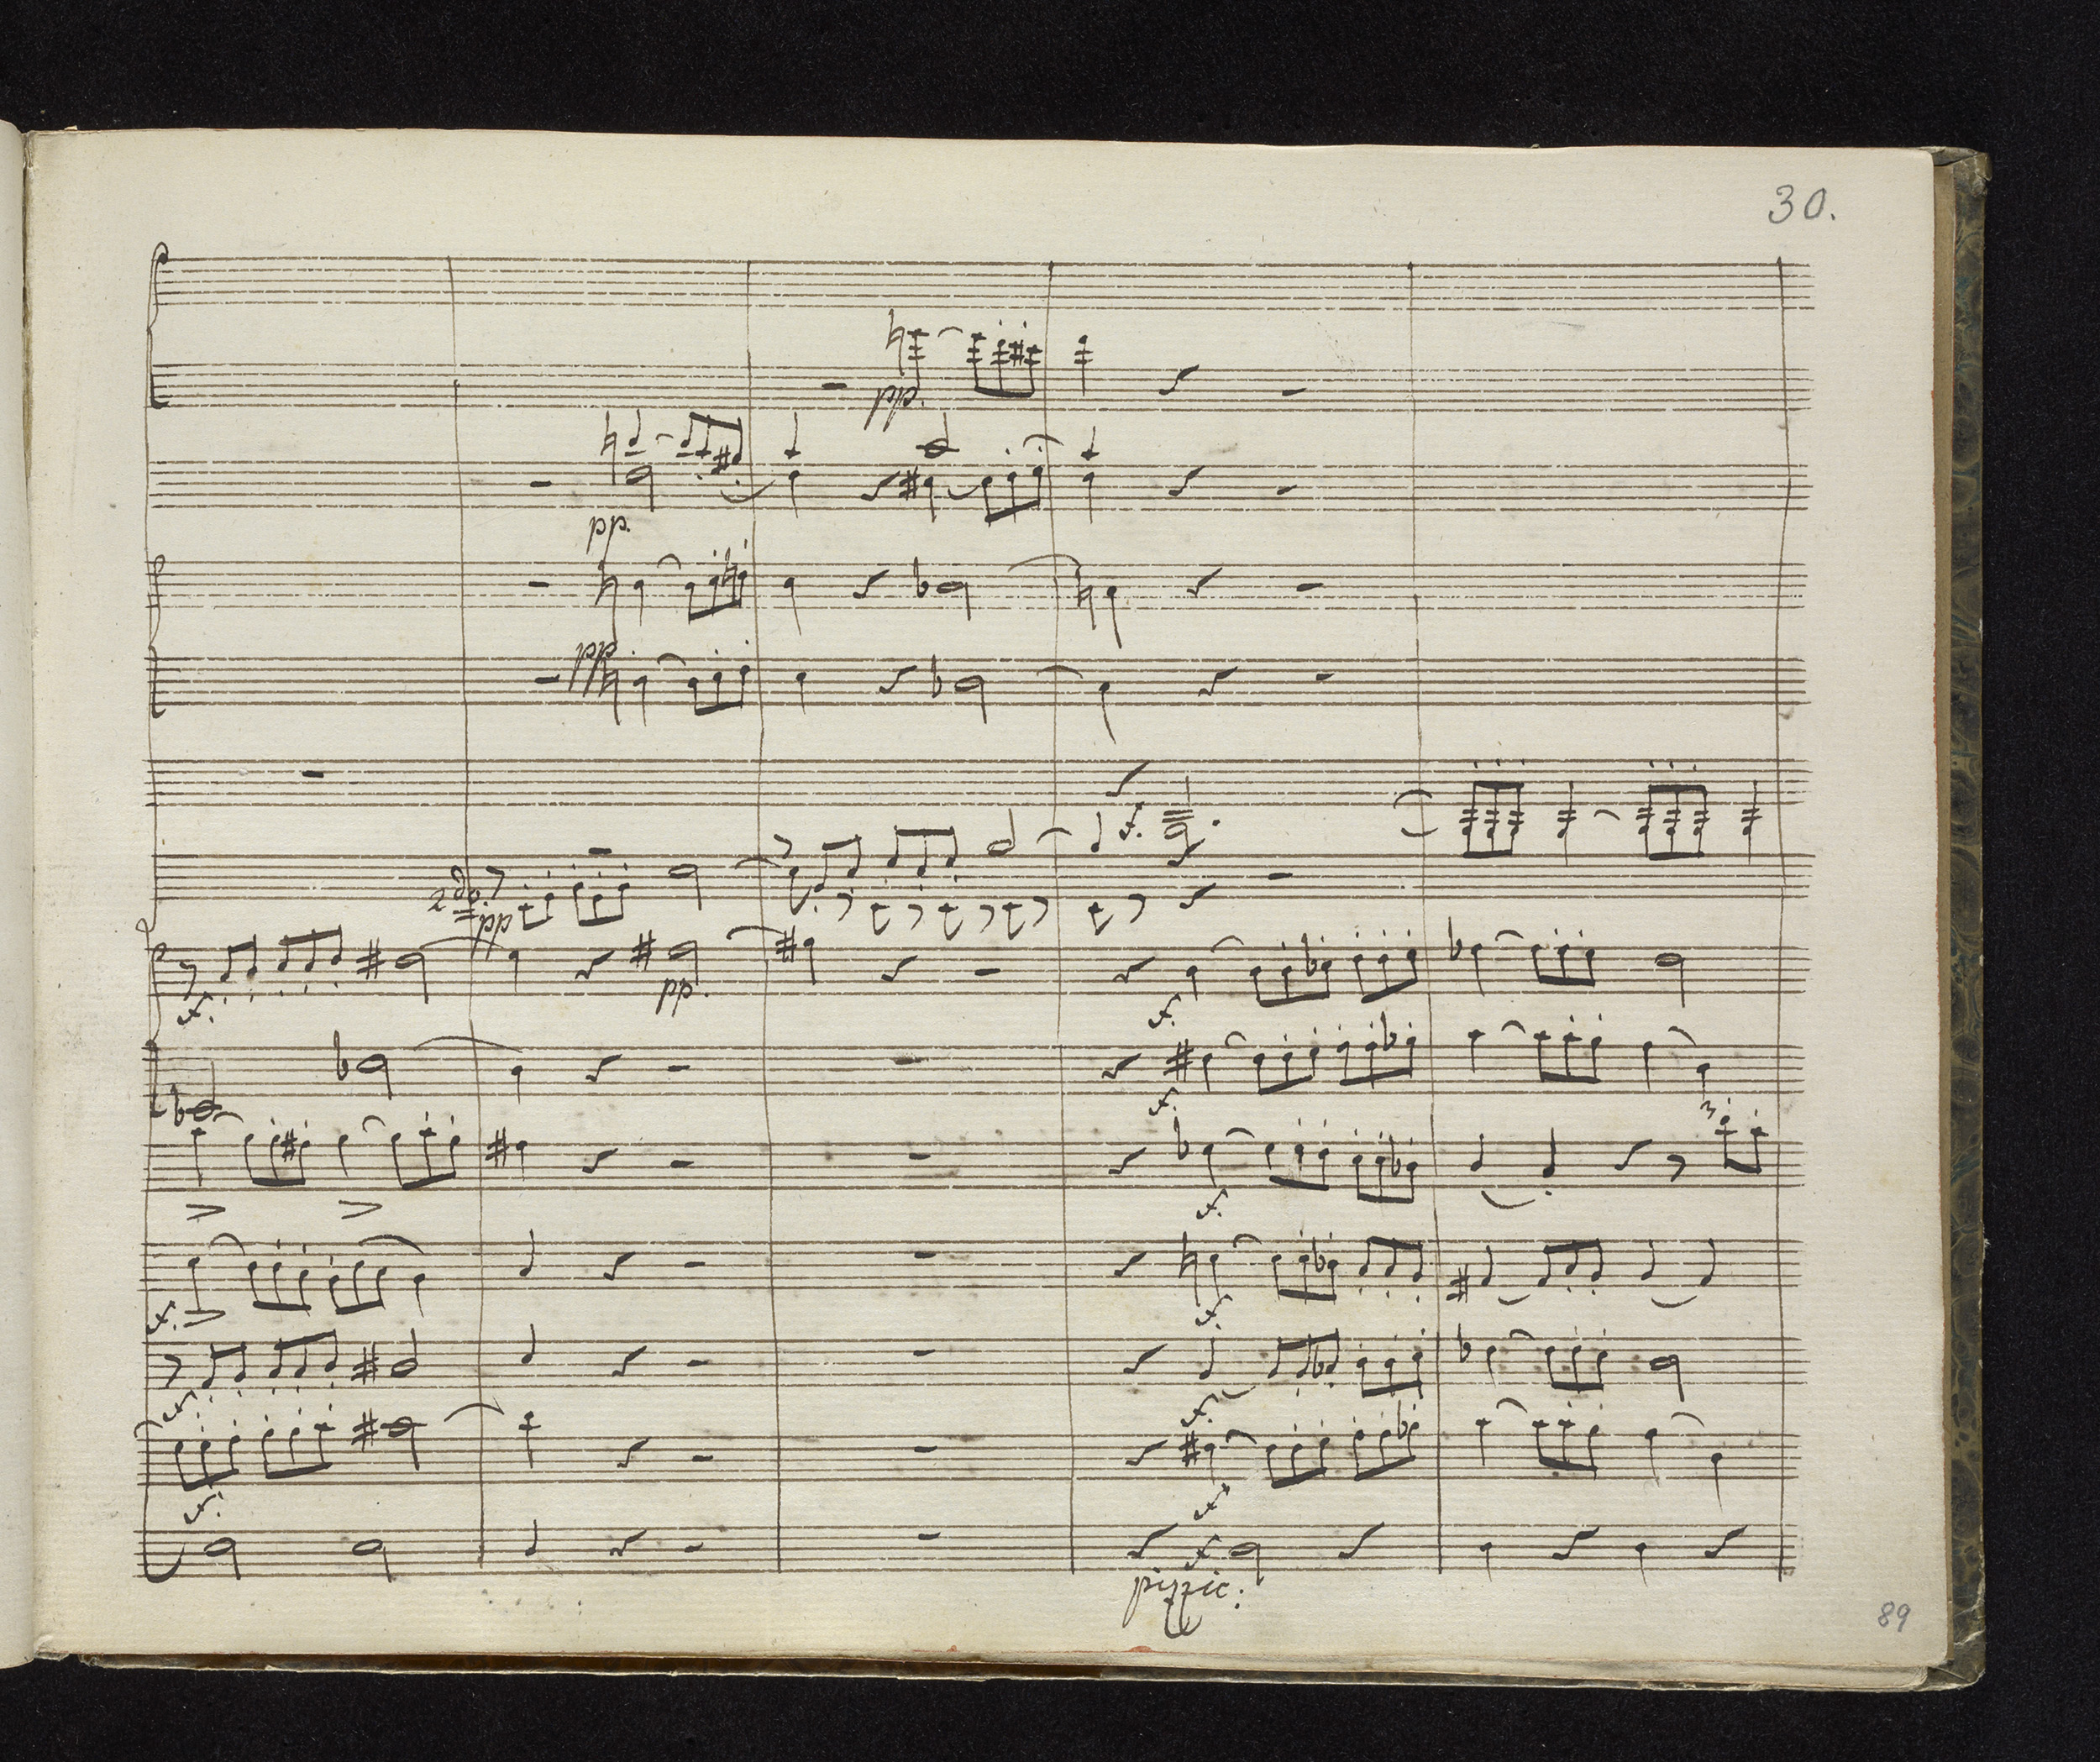 30.
pp.
pp.
pp.
f.
2do.
pp
f.
pp.
f.
f.
f.
f.
f.
f.
f.
f.
f
f
pizzic:
3
89